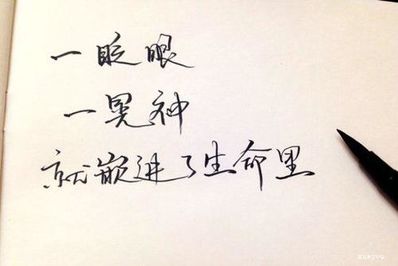 一眨眼
一晃神
就嵌进了生命里